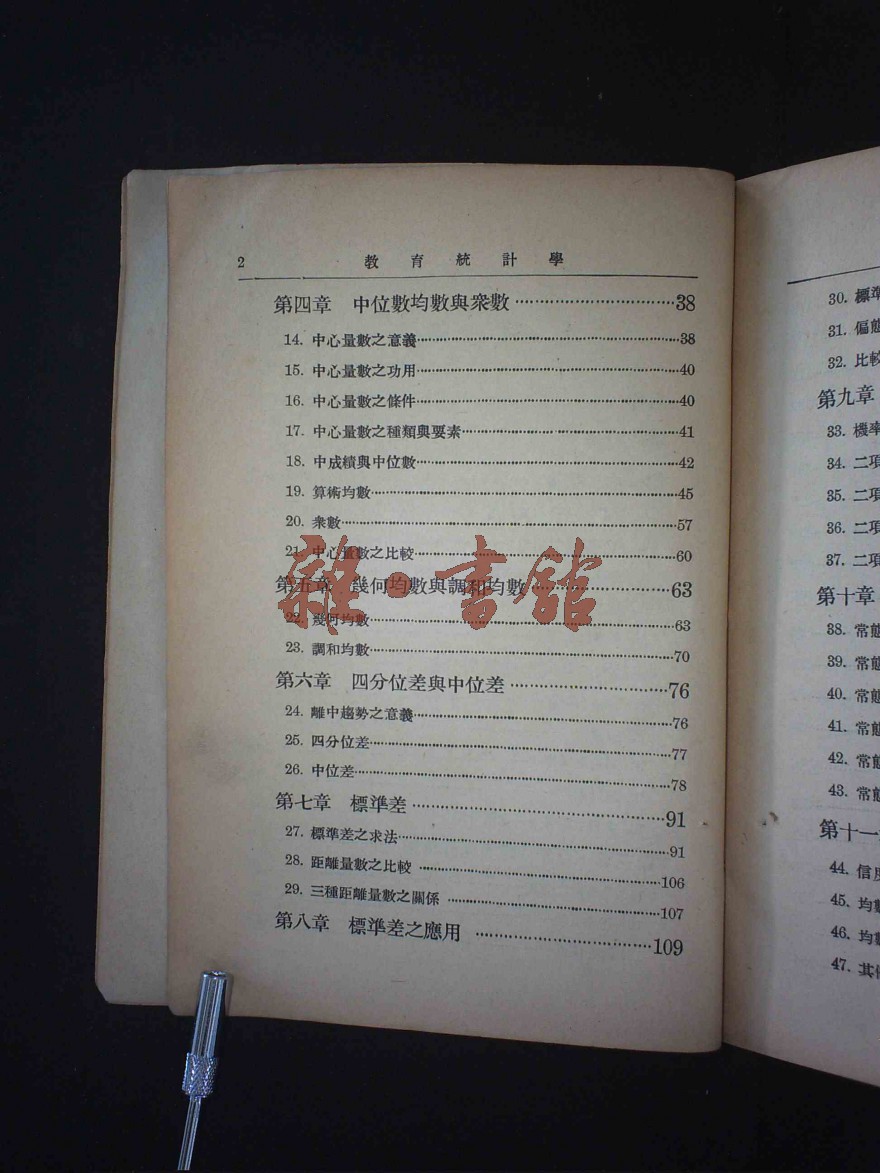 2 教育統計學
第四章 中位數均數與衆數 38
14. 中心量數之意義 38
15. 中心量數之功用 40
16. 中心量數之條件 40
17. 中心量數之種類與要素 41
18. 中成績與中位數 42
19. 算術均數 45
20. 衆數 57
21. 中心量數之比較 60
第五章 幾何均數與調和均數 63
22. 幾何均數 63
23. 調和均數 70
第六章 四分位差與中位差 76
24. 離中趨勢之意義 76
25. 四分位差 77
26. 中位差 78
第七章 標準差 91
27. 標準差之求法 91
28. 距離量數之比較 106
29. 三種距離量數之關係 107
第八章 標準差之應用 109
雜·書館
30. 標準
31. 偏態
32. 比較
第九章
33. 機率
34. 二項
35. 二項
36. 二項
37. 二項
第十章
38. 常態
39. 常態
40. 常態
41. 常態
42. 常態
43. 常態
第十一
44. 信度
45. 均數
46. 均數
47. 其他